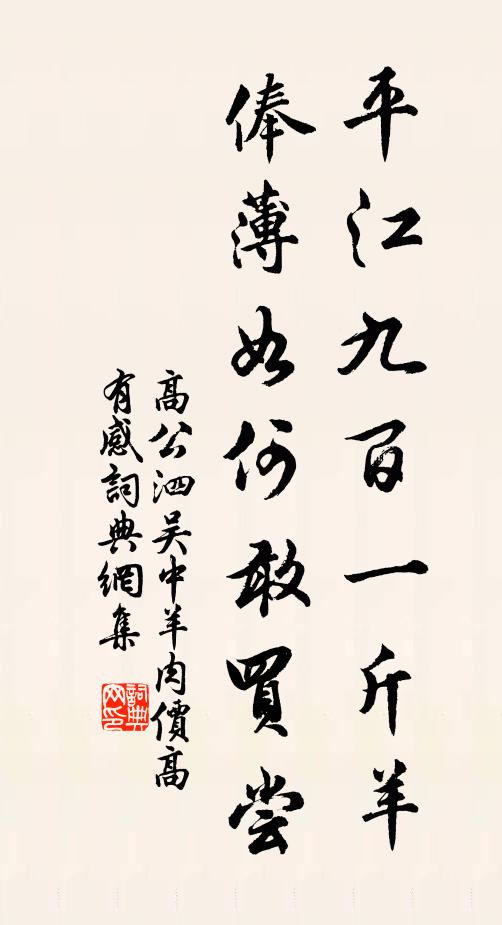 平江九百一斤羊
俸薄如何敢買尝
高公泗吴中羊肉價高
有感詞典網集
詞典网印